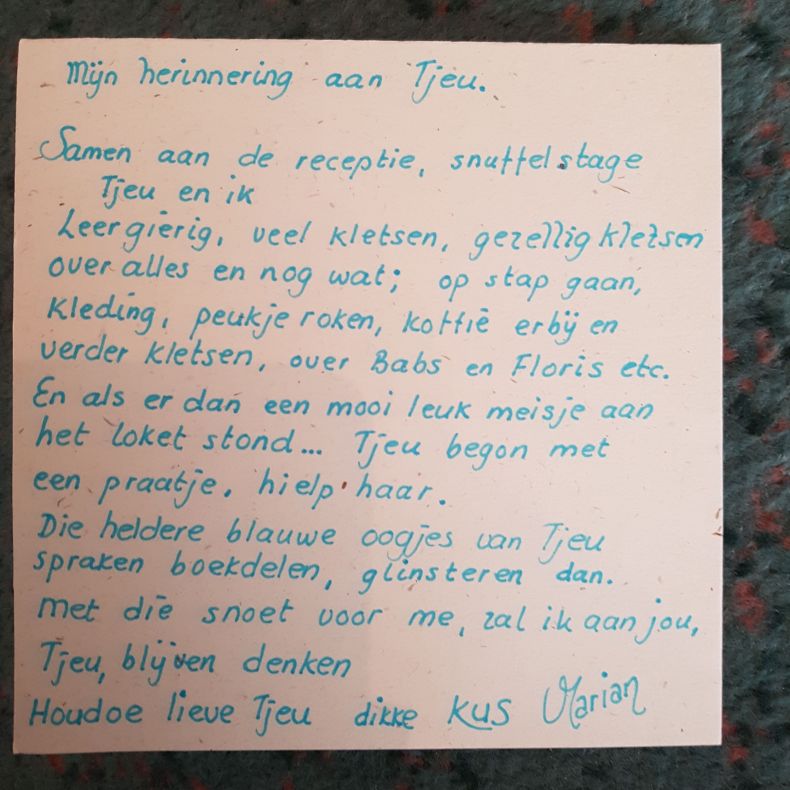 Mijn herinnering aan Tjeu.
Samen aan de receptie, snuffelstage
Tjeu en ik
Leergierig, veel kletsen, gezellig kletsen
over alles en nog wat; op stap gaan,
kleding, peukje roken, koffie erbij en
verder kletsen, over Babs en Floris etc.
En als er dan een mooi leuk meisje aan
het loket stond... Tjeu begon met
een praatje, hielp haar.
Die heldere blauwe oogjes van Tjeu
spraken boekdelen, glinsteren dan.
Met die snoet voor me, zal ik aan jou,
Tjeu, blijven denken
Houdoe lieve Tjeu dikke kus Marian